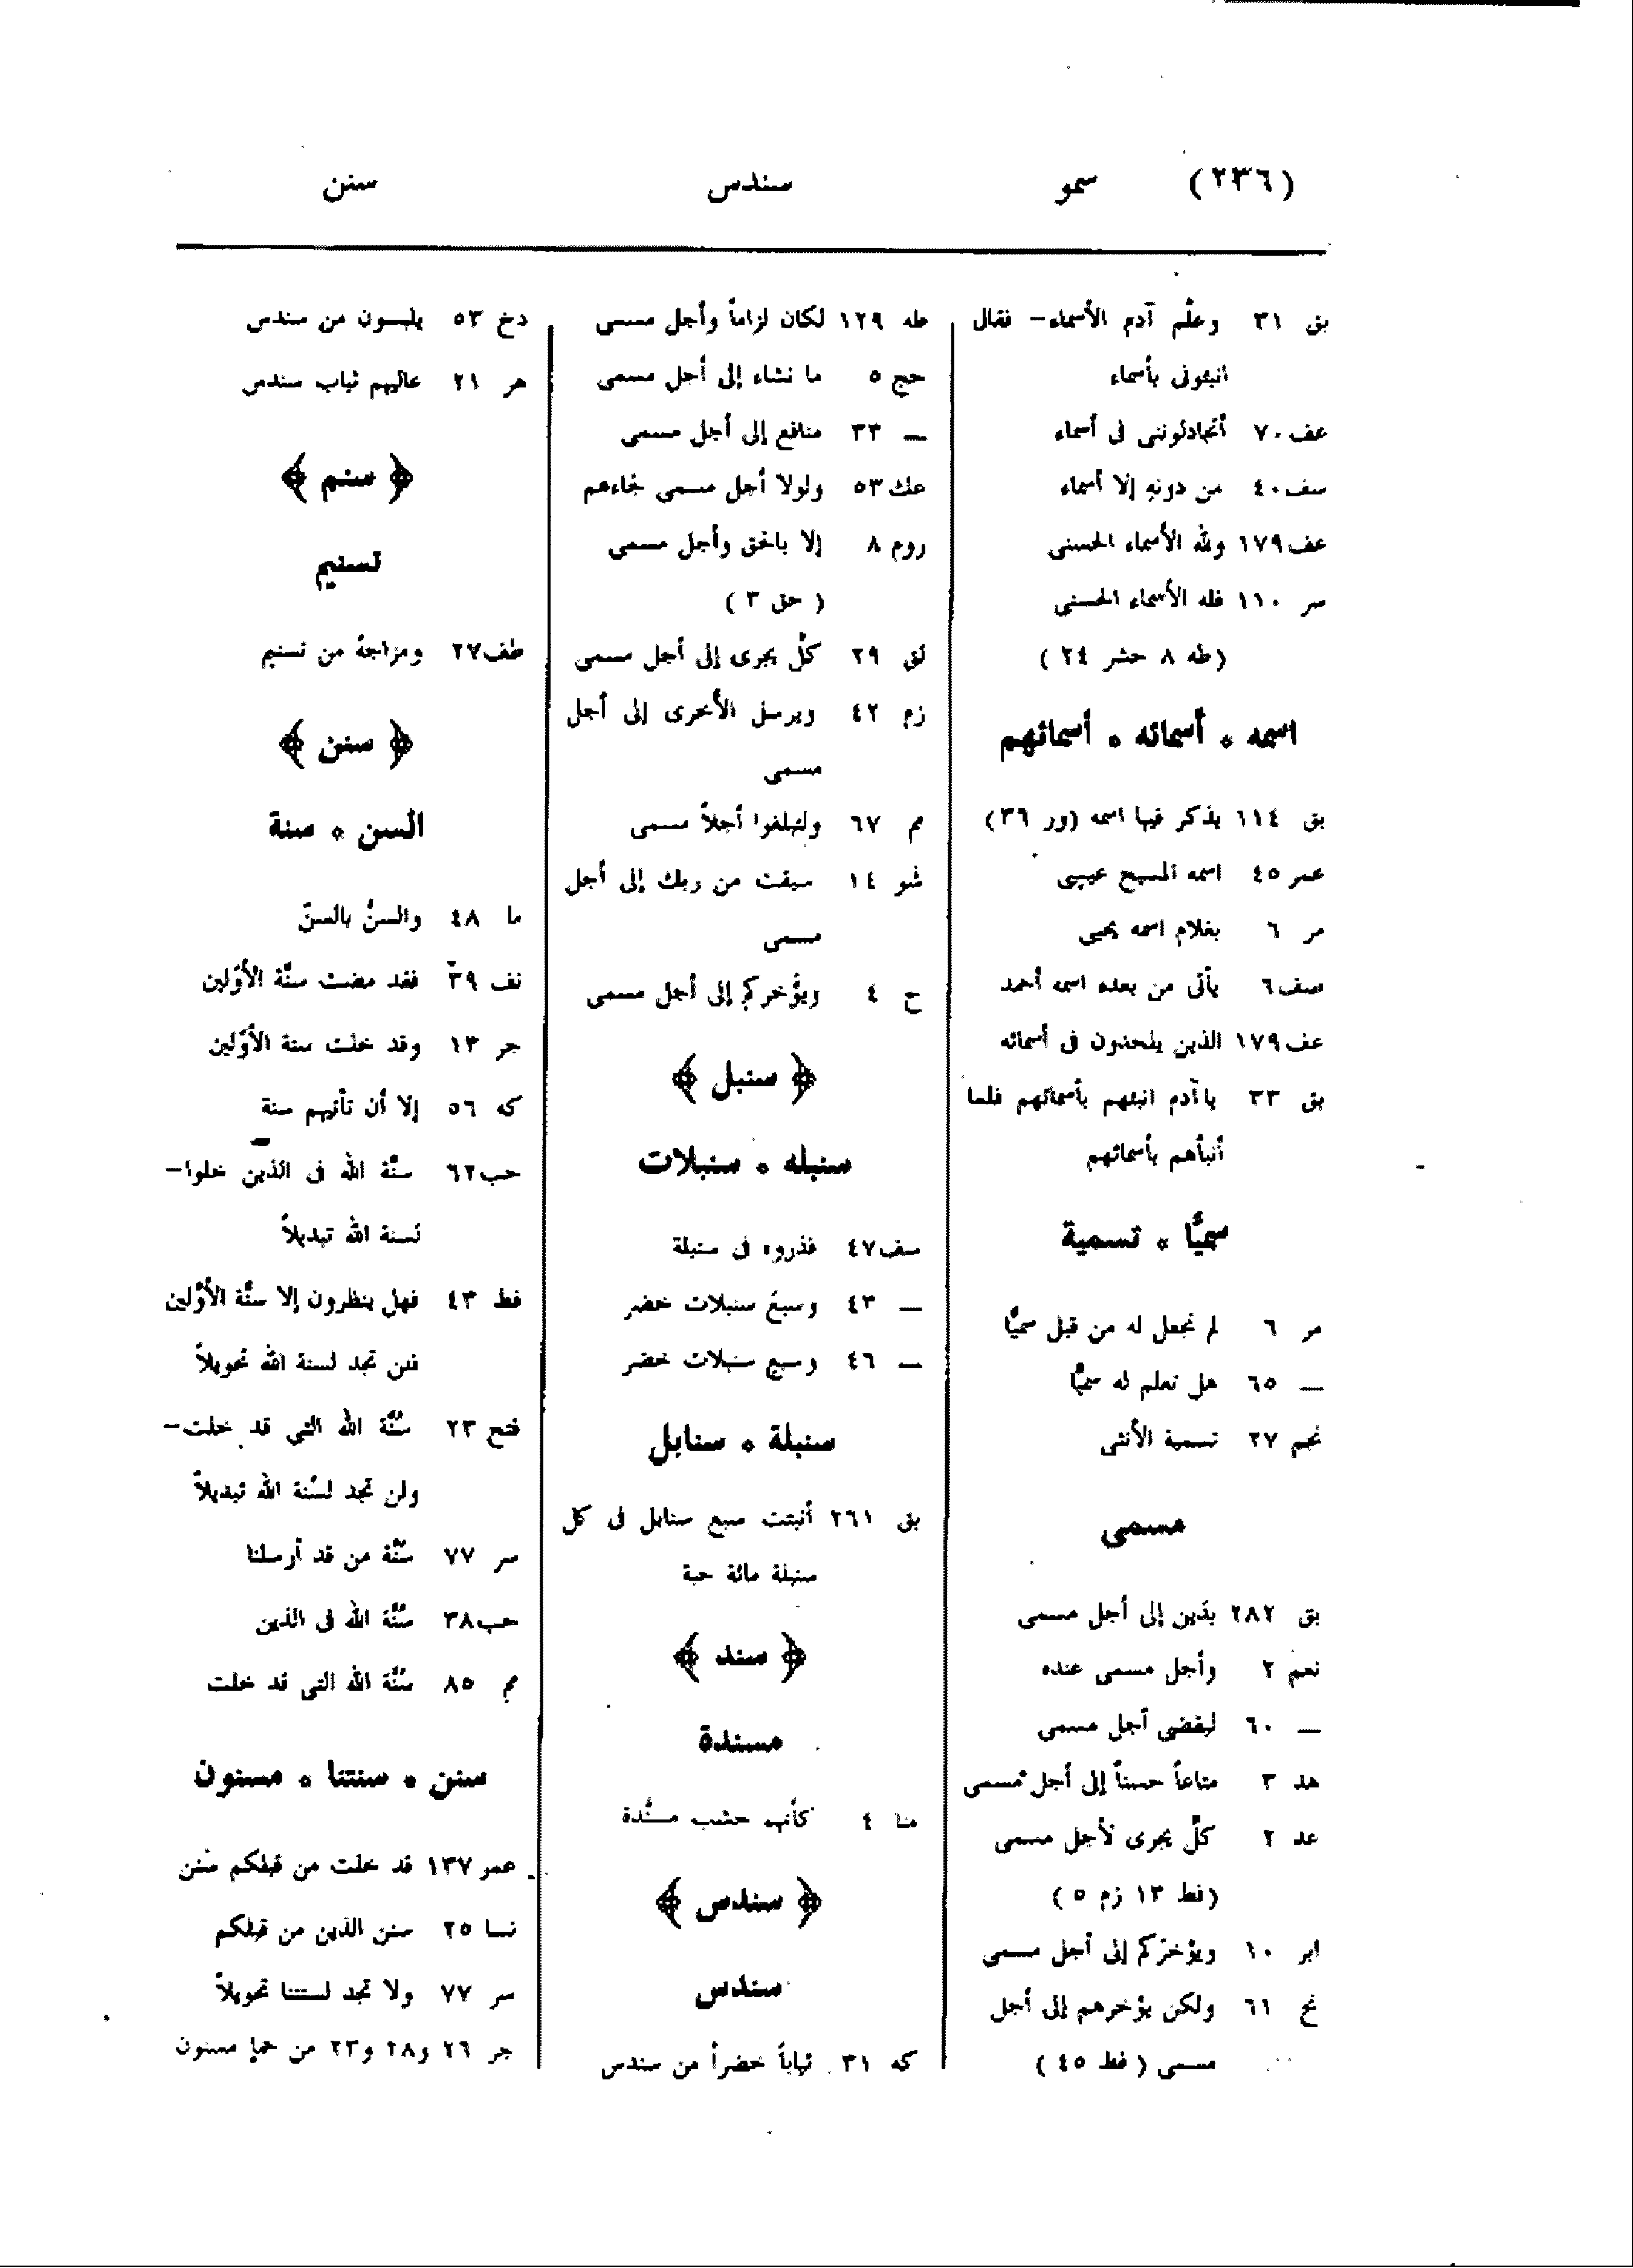 (٢٣٦) سمو سندس سنن
بق ٣١ وعلّم آدم الأسماء- فقال
انبئونى بأسماء
عف ٧٠ أتجادلوننى فى أسماء
سف ٤٠ من دونه إلا أسماء
عف ١٧٩ ولله الأسماء الحسنى
سر ١١٠ فله الأسماء الحسنى
(طه ٨ حشر ٢٤)
اسمه ٠ أسمائه ٠ أسمائهم
بق ١١٤ يذكر فيها اسمه (ور ٣٦)
عمر ٤٥ اسمه المسيح عيسى
مر ٦ بغلام اسمه يحيى
صف ٦ يأتى من بعده اسمه أحمد
عف ١٧٩ الذين يلحدون فى أسمائه
بق ٣٣ يا آدم انبئهم بأسمائهم فلما
أنبأهم بأسمائهم
سميًّا ٠ تسمية
مر ٦ لم نجعل له من قبل سميًّا
— ٦٥ هل تعلم له سميًّا
نجم ٢٧ تسمية الأنثى
مسمى
بق ٢٨٢ بدَين إلى أجل مسمى
نعم ٢ وأجل مسمى عنده
— ٦٠ ليقضى أجل مسمى
هد ٣ متاعاً حسناً إلى أجل مسمى
عد ٢ كلٌّ يجرى لأجل مسمى
(فط ١٣ زم ٥)
ابر ١٠ ويؤخركم إلى أجل مسمى
نح ٦١ ولكن يؤخرهم إلى أجل
مسمى (فط ٤٥)
طه ١٢٩ لكان لزاماً وأجل مسمى
حج ٥ ما نشاء إلى أجل مسمى
— ٣٣ منافع إلى أجل مسمى
عك ٥٣ ولولا أجل مسمى لجاءهم
روم ٨ إلا بالحق وأجل مسمى
(حق ٣)
لق ٢٩ كلٌّ يجرى إلى أجل مسمى
زم ٤٢ ويرسل الأخرى إلى أجل
مسمى
مم ٦٧ ولتبلغوا أجلاً مسمى
شو ١٤ سبقت من ربك إلى أجل
مسمى
ح ٤ ويؤخركم إلى أجل مسمى
﴿ سنبل ﴾
سنبله ٠ سنبلات
سف ٤٧ فذروه فى سنبلة
— ٤٣ وسبعَ سنبلات خضر
— ٤٦ وسبع سنبلات خضر
سنبلة ٠ سنابل
بق ٢٦١ أنبتت سبع سنابل فى كل
سنبلة مائة حبة
﴿ سند ﴾
مسندة
منا ٤ كأنهم خشب مسنَّدة
﴿ سندس ﴾
سندس
كه ٣١ ثياباً خضراً من سندس
دخ ٥٣ يلبسون من سندس
هر ٢١ عاليهم ثياب سندس
﴿ سنم ﴾
تسنيم
طف ٢٧ ومزاجهُ من تسنيم
﴿ سنن ﴾
السن ٠ سنة
ما ٤٨ والسنُّ بالسنّ
نف ٣٩ فقد مضت سنَّة الأوَّلين
جر ١٣ وقد خلت سنة الأوَّلين
كه ٥٦ إلا أن تأتيهم سنة
حب ٦٢ سنَّة الله فى الذين خلوا-
لسنة الله تبديلاً
فط ٤٣ فهل ينظرون إلا سنَّة الأوَّلين
فلن تجد لسنة الله تحويلاً
فتح ٢٣ سُنَّة الله التى قد خلت-
ولن تجد لسُنة الله تبديلاً
سر ٧٧ سُنَّة من قد أرسلنا
حب ٣٨ سُنَّة الله فى الذين
مم ٨٥ سُنَّة الله التى قد خلت
سنن ٠ سنتنا ٠ مسنون
عمر ١٣٧ قد خلت من قبلكم سُنن
نسا ٢٥ سنن الذين من قبلكم
سر ٧٧ ولا تجد لسنتنا تحويلاً
جر ٢٦ و٢٨ و٣٣ من حمإ مسنون